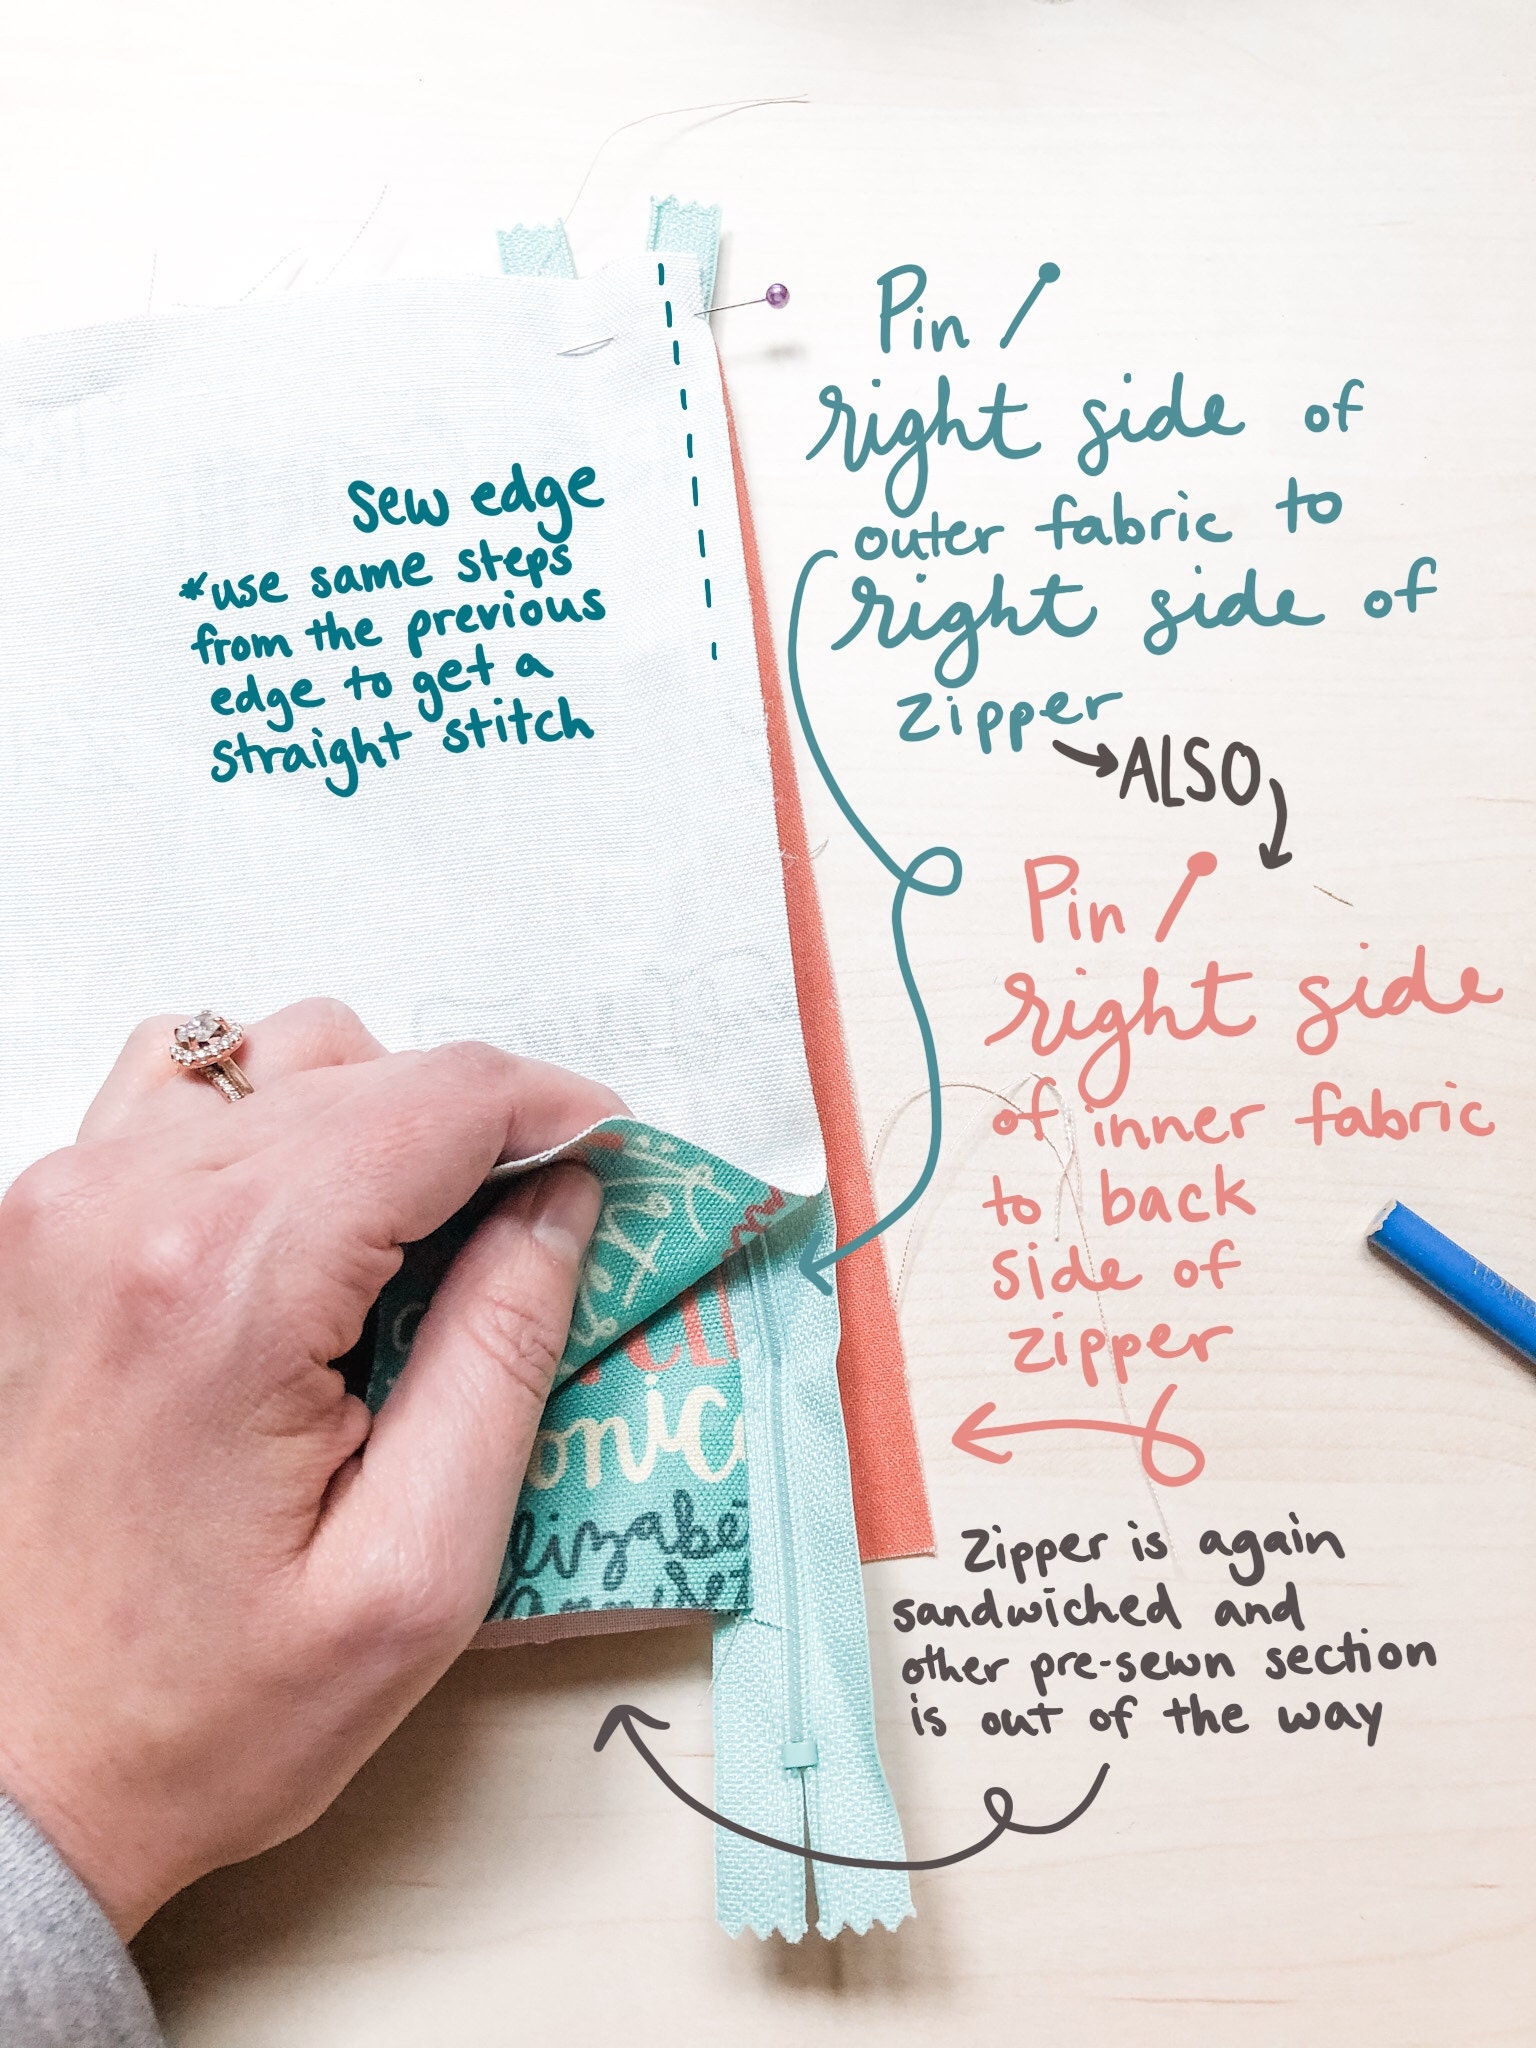 Pin
right side of
outer fabric to
right side of
zipper
ALSO
Pin
right side
of inner fabric
to back
side of
zipper
sew edge
*use same steps
from the previous
edge to get a
straight stitch
zipper is again
sandwiched and
other pre-sewn section
is out of the way
onic
elizabe